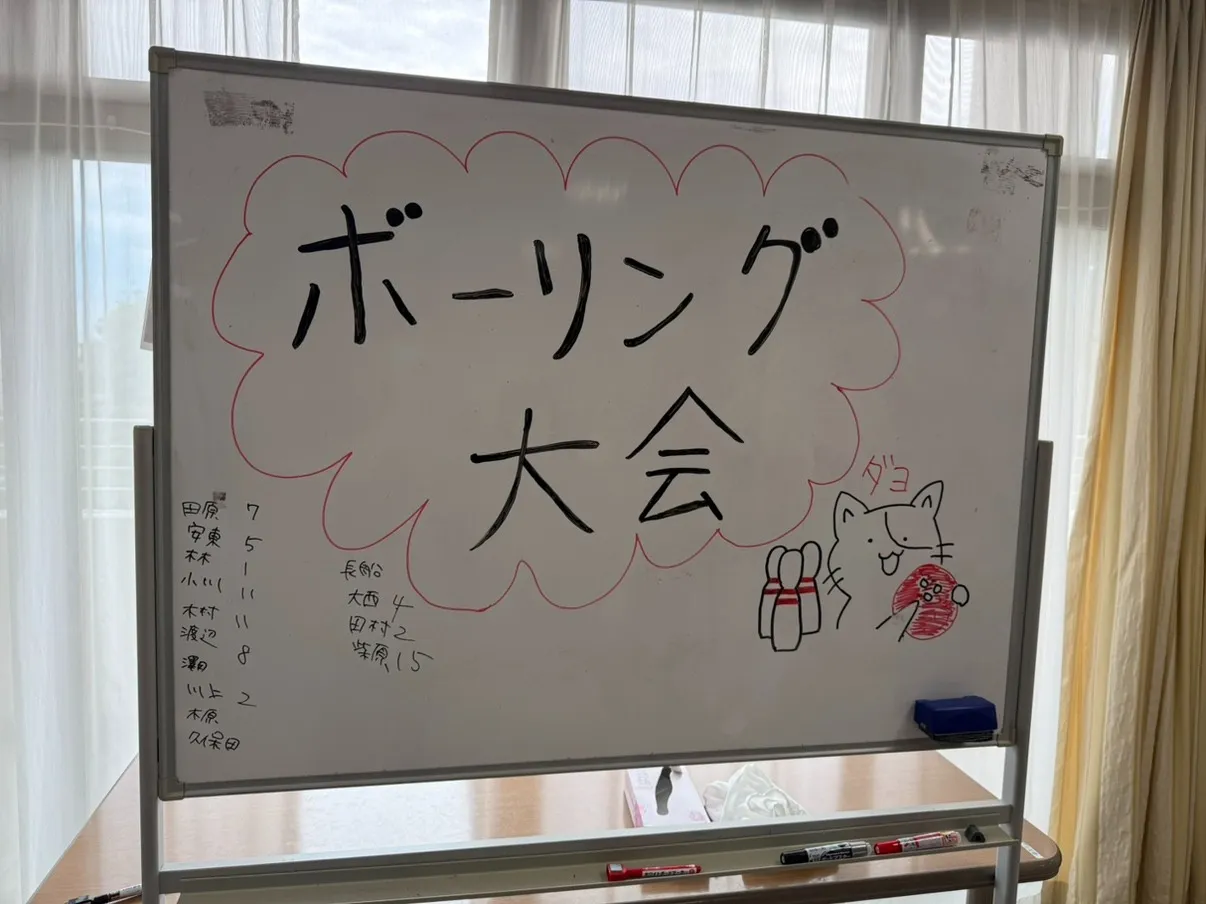 ボーリング
大会
ダヨ
田原 7
安東 5
林 1
小川 11
木村 11
渡辺 8
澤田
川上 2
木原
久保田
長船
大西 4
田村 2
柴原 15